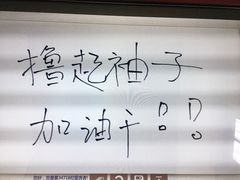 撸起袖子
加油干!!